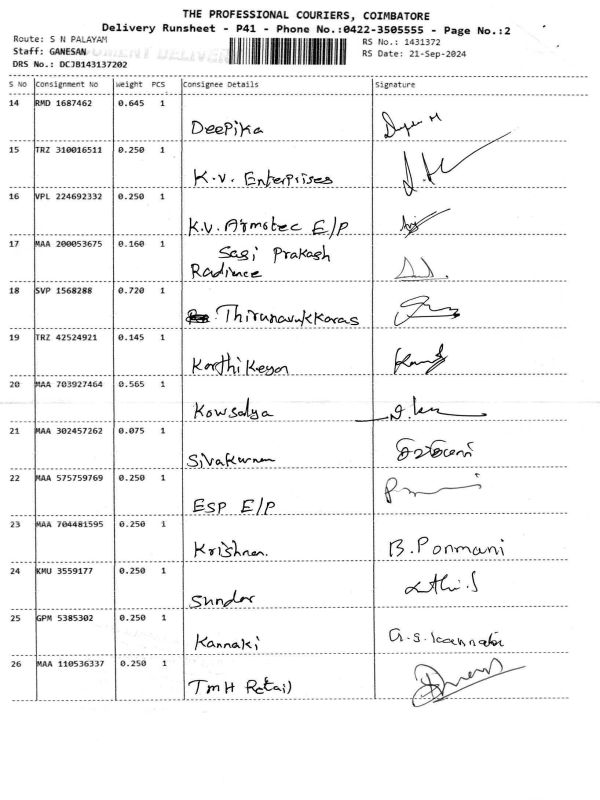 THE PROFESSIONAL COURIERS, COIMBATORE
Delivery Runsheet - P41 - Phone No.:0422-3505555 - Page No.:2
Route: S N PALAYAM
RS No.: 1431372
Staff: GANESAN
RS Date: 21-Sep-2024
DRS No.: DCJB143137202
S No Consignment No Weight PCS Consignee Details Signature
14 RMD 1687462 0.645 1
DeePika
15 TRZ 310016511 0.250 1
K.V. Enterprises
16 VPL 224692332 0.250 1
K.V. Airmotec E/P
17 MAA 200053675 0.160 1
Sasi Prakash
Radiance
18 SVP 1568288 0.720 1
Thirunavukkaras
19 TRZ 42524921 0.145 1
Karthikeyan
20 MAA 703927464 0.565 1
Kowsalya
21 MAA 302457262 0.075 1
Sivakumar
22 MAA 575759769 0.250 1
ESP E/P
23 MAA 704481595 0.250 1
Krishnan. B. Ponmani
24 KMU 3559177 0.250 1
Sundar
25 GPM 5385302 0.250 1
Kannaki G.S. Kannaki
26 MAA 110536337 0.250 1
TMH Retail